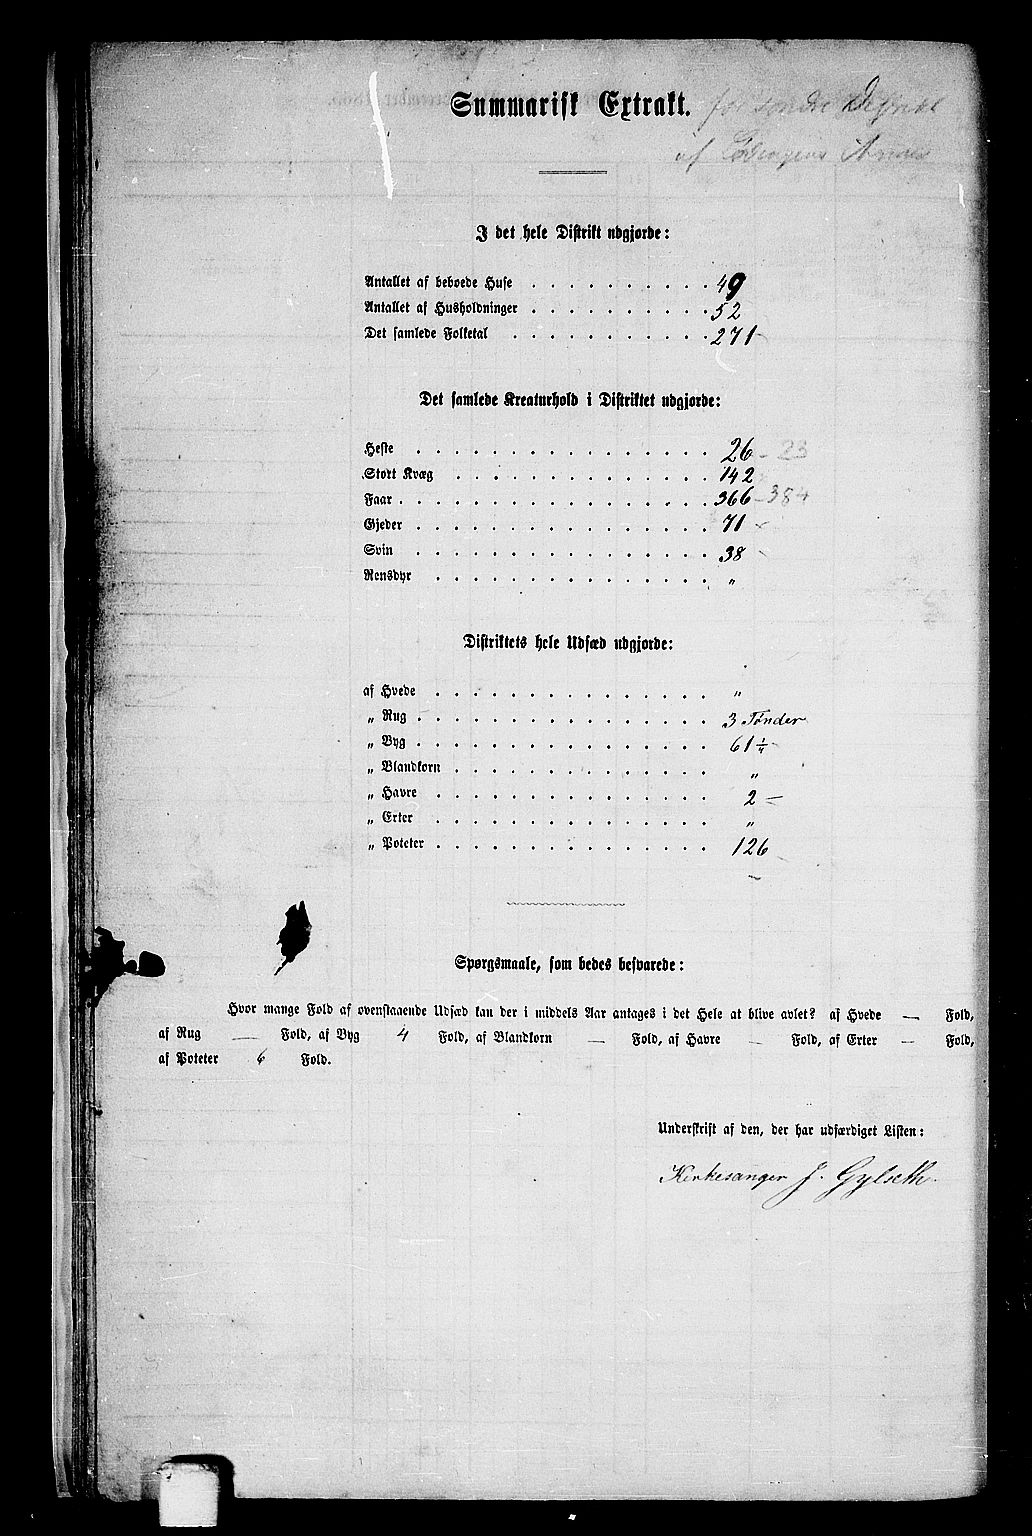 Summarisk Extrakt. for søndre
af
I det hele Distrikt udgjorde:
Antallet af beboede Huse . . . . . . . . . . 49
Antallet af Husholdninger . . . . . . . . . . 52
Det samlede Folketal . . . . . . . . . . . 271
Det samlede Kreaturhold i Distriktet udgjorde:
Heste . . . . . . . . . . . . . . . . 26 - 23
Stort Kvæg . . . . . . . . . . . . . . 142
Faar . . . . . . . . . . . . . . . . . 366 - 384
Gjeder . . . . . . . . . . . . . . . . 71
Svin . . . . . . . . . . . . . . . . 38
Rensdyr . . . . . . . . . . . . . . . „
Distriktets hele Udsæd udgjorde:
af Hvede . . . . . . . . . . . . . . . „
„ Rug . . . . . . . . . . . . . . . . 3 Tønder
„ Byg . . . . . . . . . . . . . . . . 61 1/4
„ Blandkorn . . . . . . . . . . . . . . „
„ Havre . . . . . . . . . . . . . . . 2 –
„ Erter . . . . . . . . . . . . . . . „
„ Poteter . . . . . . . . . . . . . . . 126
Spørgsmaale, som bedes besvarede:
Hvor mange Fold af ovenstaaende Udsæd kan der i middels Aar antages i det Hele at blive avlet? af Hvede — Fold,
af Rug — Fold, af Byg 4 Fold, af Blandkorn — Fold, af Havre — Fold, af Erter — Fold,
af Poteter 6 Fold.
Underskrift af den, der har udfærdiget Listen:
Kirkesanger J. Gylseth.